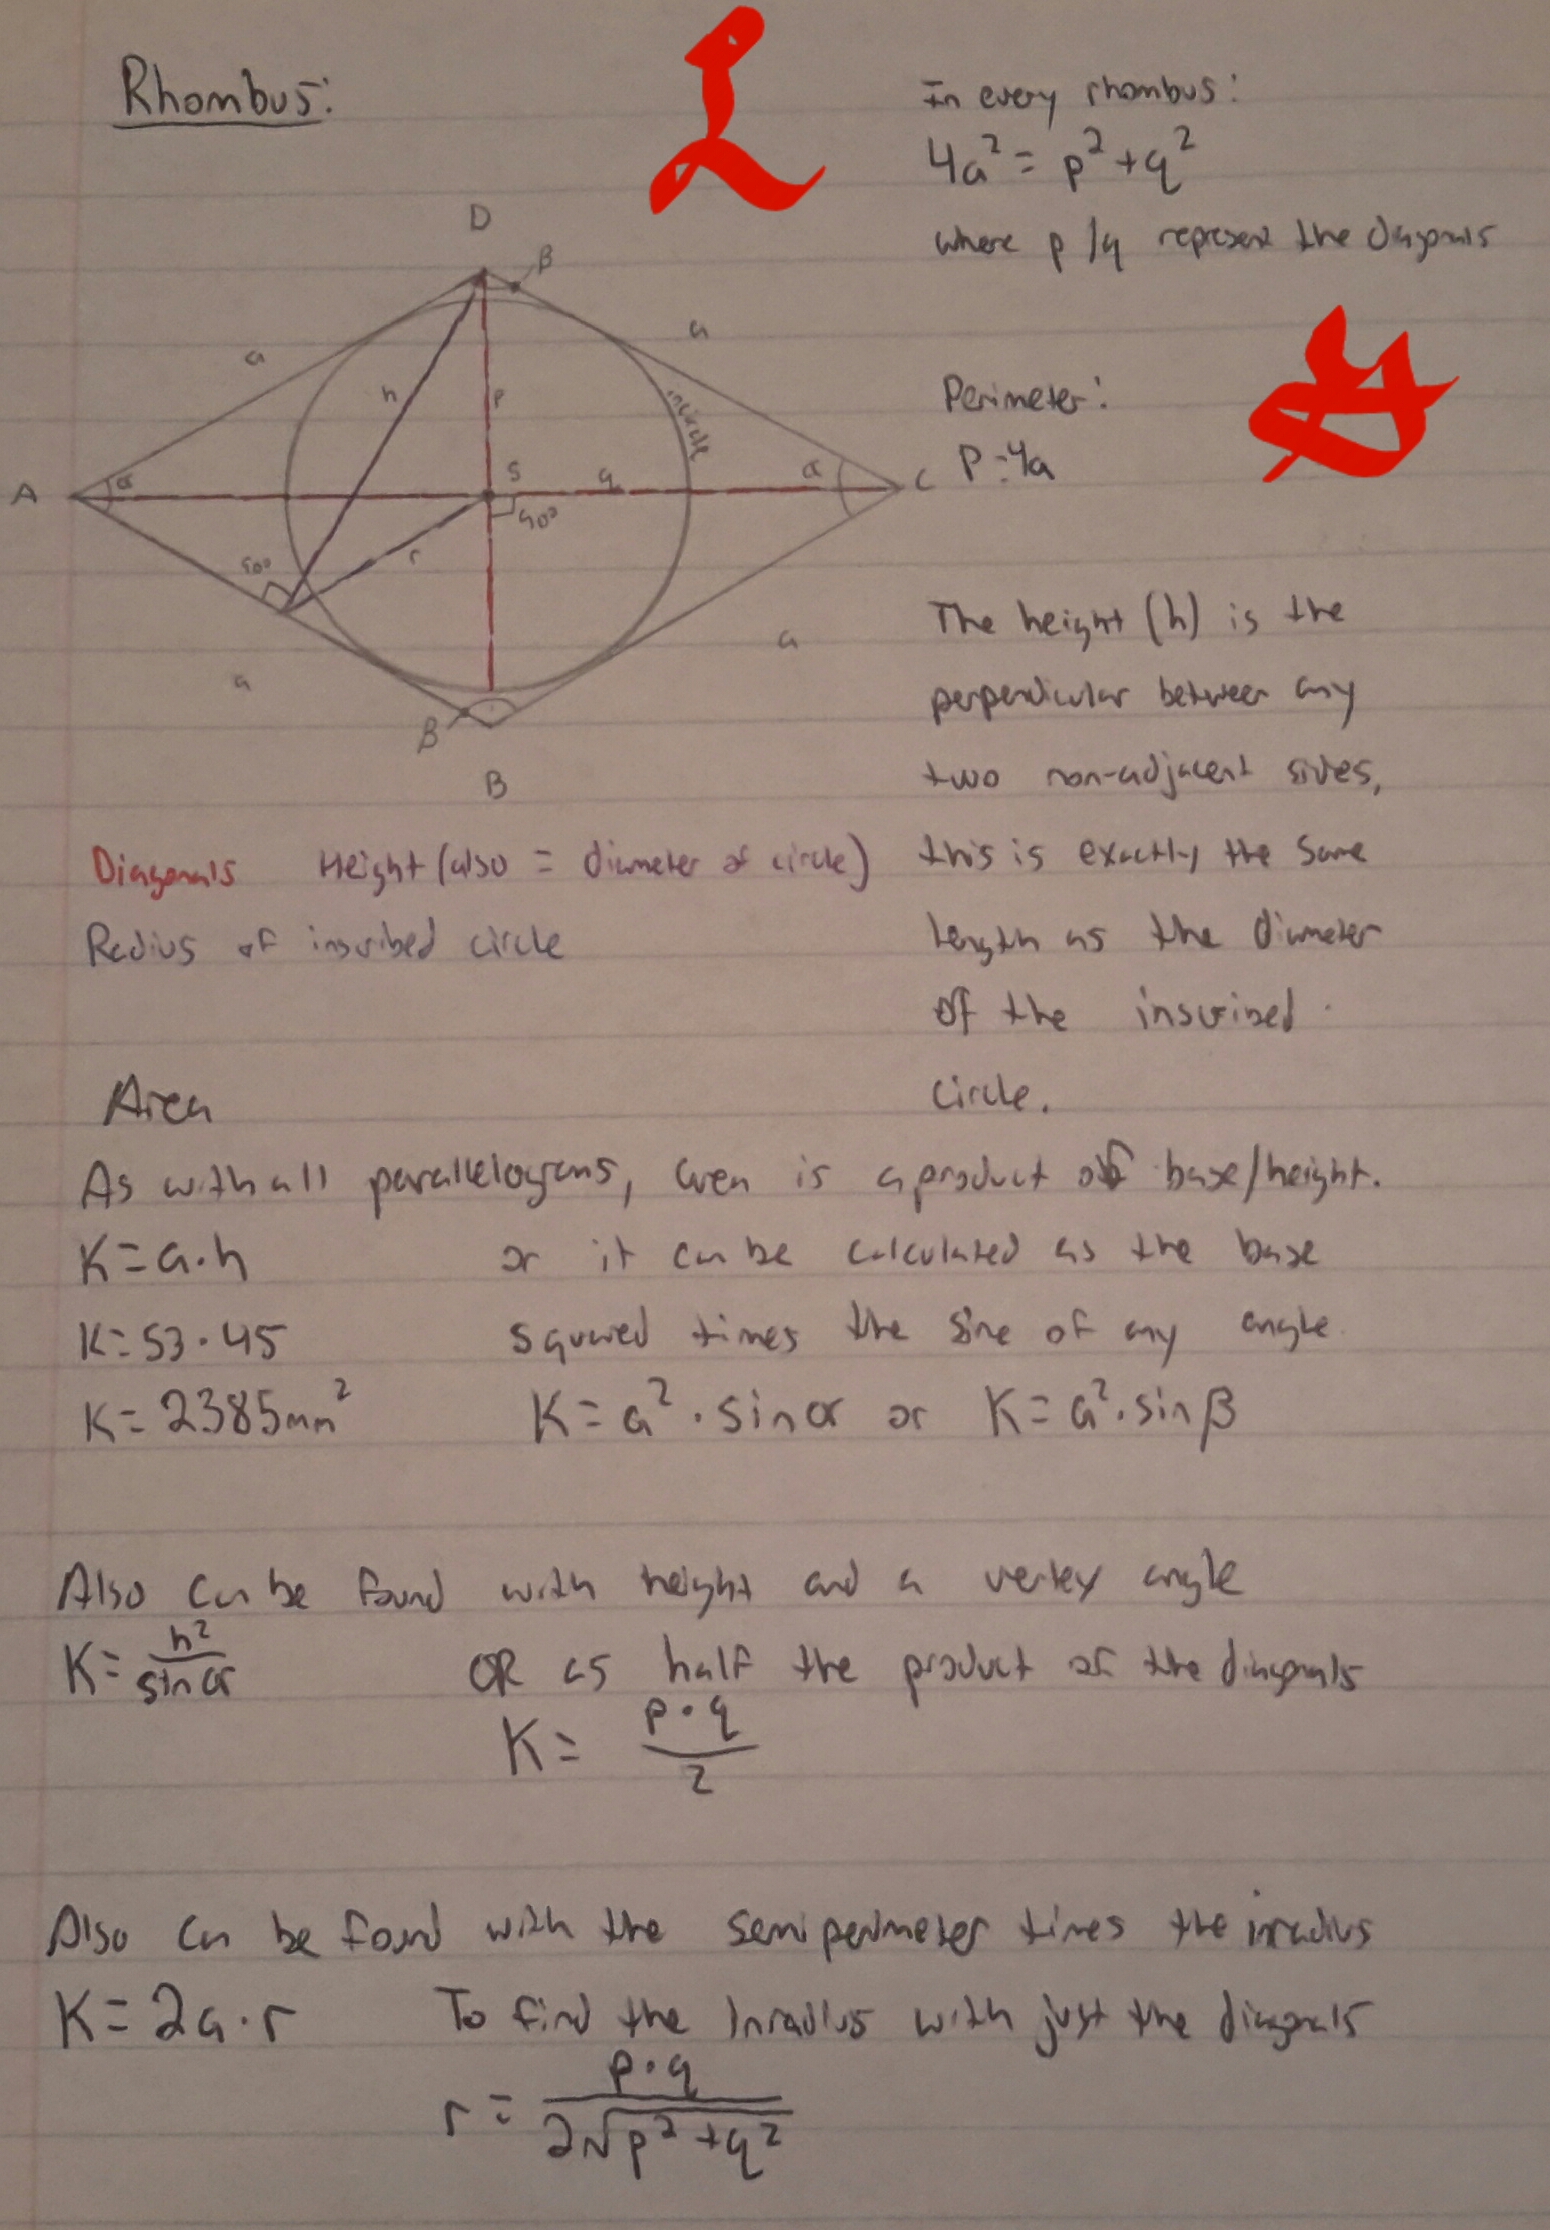 Rhombus:
In every rhombus:
4a² = p² + q²
where p/q represent the diagonals
D
β
a
a
h
p
incircle
Perimeter:
P = 4a
A
α
S
q
α
C
90°
90°
r
a
a
β
B
The height (h) is the
perpendicular between any
two non-adjacent sides,
this is exactly the same
length as the diameter
of the inscribed
circle.
Diagonals Height (also = diameter of circle)
Radius of inscribed circle
Area
As with all parallelograms, area is a product of base/height.
K = a·h or it can be calculated as the base
K = 53·45 squared times the sine of any angle
K = 2385mm² K = a²·sin α or K = a²·sin β
Also can be found with height and a vertex angle
K = h²/sin α OR as half the product of the diagonals
K = p·q/2
Also can be found with the semiperimeter times the inradius
K = 2a·r To find the Inradius with just the diagonals
r = p·q/2√p² + q²